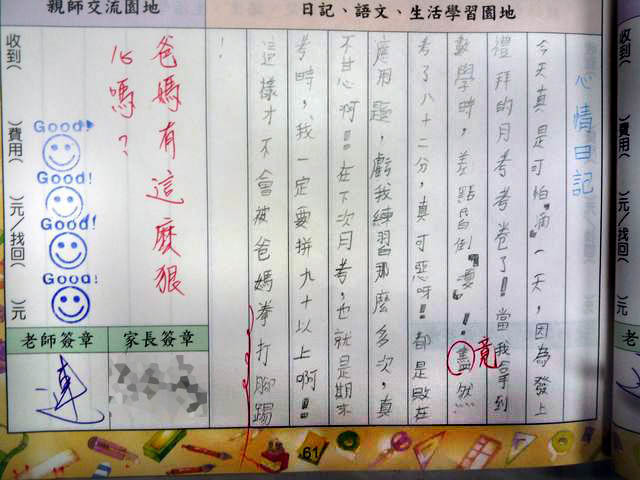 日記、語文、生活學習園地
心情日記
今天真是可怕"滴"一天,因為發上
禮拜的月考考卷了!!當我拿到
數學時,差點昏倒『要』!盡然
竟
考了八十二分,真可惡呀!!都是敗在
應用題,虧我練習那麼多次,真
不甘心啊!!在下次月考,也就是期末
考時,我一定要拼九十以上啊!!
這樣才不會被爸媽拳打腳踢
!
親師交流園地
爸媽有這麼狠
心嗎?
Good!
Good!
Good!
Good!
收到( )費用( )元/找回( )元
家長簽章
老師簽章
連
61